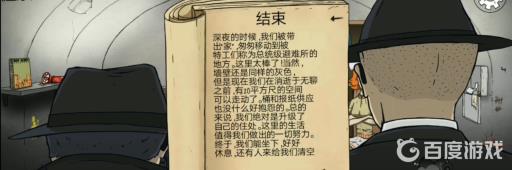 结束
深夜的时候,我们被带
出'家',匆匆移动到被
特工们称为总统级避难所的
地方。这里太棒了!当然,
墙壁还是同样的灰色,
但是现在我们在消逝于无聊
之前,有10平方尺的空间
可以走动了。桶和报纸供应
也没什么好抱怨的。总的
来说,我们绝对是升级了
自己的住处。这里的生活
值得我们做出的一切努力。
终于,我们能坐下,好好
休息,还有人来给我们清空
百度游戏